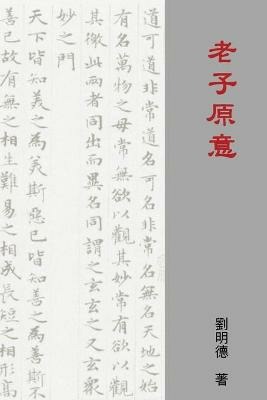 老子原意
劉明德 著
道可道非常道名可名非常名無名天地之始
有名萬物之母常無欲以觀其妙常有欲以觀
其徼此兩者同出而異名同謂之玄玄之又玄眾
妙之門
天下皆知美之為美斯惡已皆知善之為善斯不
善已故有無之相生難易之相成長短之相形高